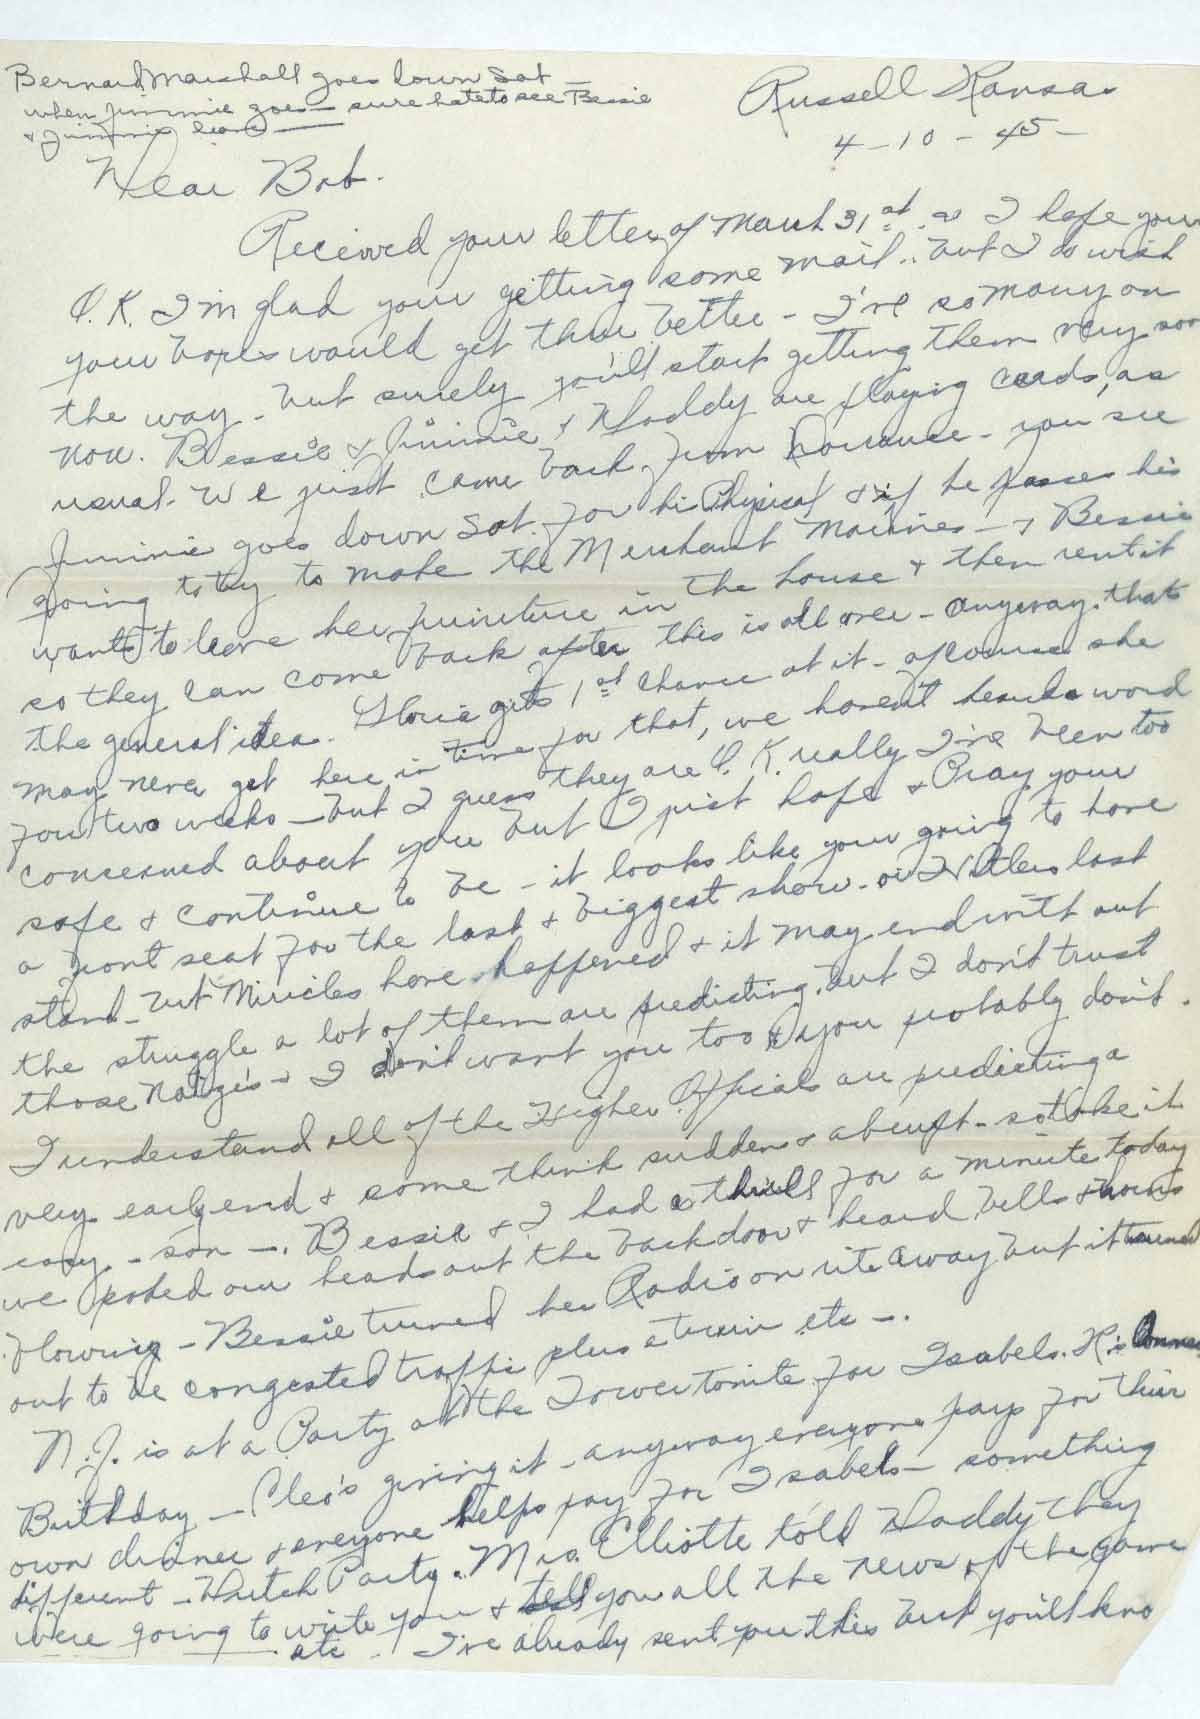 Bernard Marshall goes down Sat —
when Jimmie goes — sure hate to see Bessie
& Jimmie leave —
Russell Kansas
4-10-45-
Dear Bob.
Received your letter of March 31st. as I hope your
O.K. I'm glad your getting some mail.. but I do wish
your boxes would get thru better - I've so many on
the way - but surely you'll start getting them very soon
now. Bessie & Jimmie & Daddy are playing cards, as
usual. We just came back from Dorrance - you see
Jimmie goes down Sat. for his Physical & if he passes his
going to try to make the Merchant Marines - & Bessie
wants to leave her furniture in the house & then rent it
so they can come back after this is all over - anyway. thats
the general idea. Gloria gets 1st chance at it - of course she
may never get here in time for that, we haven't heard a word
for two weeks - but I guess they are O.K. really I've been too
concerned about you but I just hope & Pray your
safe & continue to be - it looks like your going to have
a front seat for the last & biggest show - or Hitlers last
stand - but Miricles have happened & it may end with out
the struggle a lot of them are predicting. but I don't trust
those Natzie's - I don't want you too & you probably don't.
I understand all of the Higher Officials are predicting a
very early end & some think sudden & abrupt - so take it
easy - son -. Bessie & I had a thrill for a minute today
we poked our heads out the back door & heard bells & horns
blowing - Bessie turned her Radio on rite away but it turned
out to be congested traffic plus a train etc -.
N.J. is at a Party at the Tower tonite for Isabels.
Birthday - Cleo's giving it - anyway everyone pays for their
own dinner & everyone helps pay for Isabels - something
different - Dutch Party. Mrs. Elliotte told Daddy they
were going to write you & tell you all the news of the game
etc - I've already sent you this but you'll kno